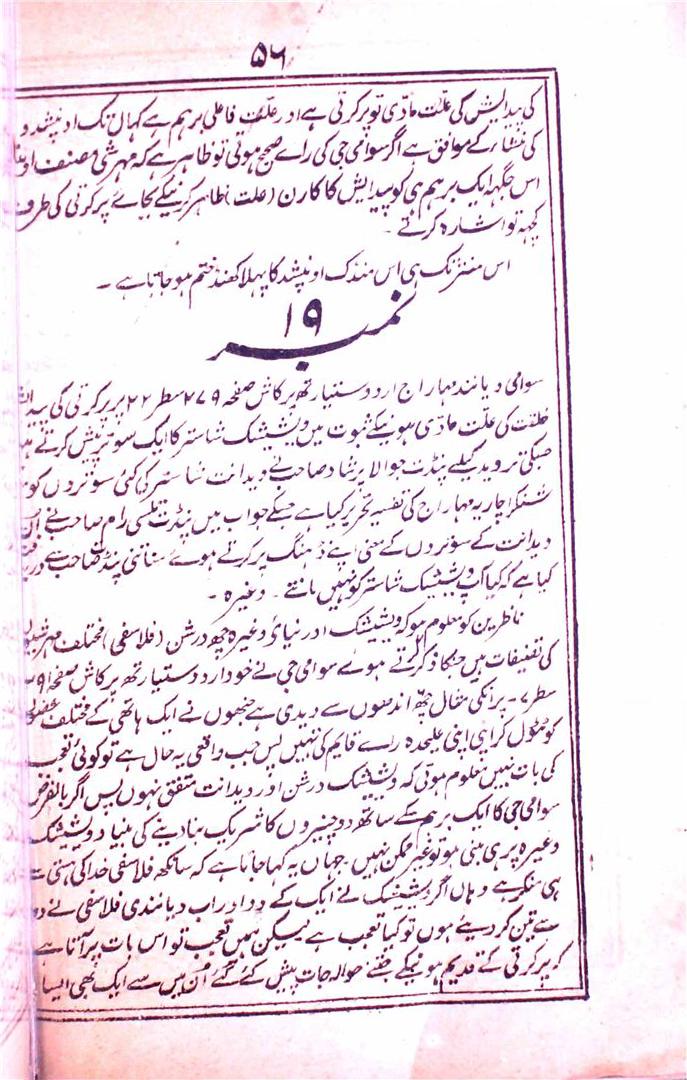 ۵۶
کی پیدایش کی علّت مادّی تو پرکرتی ہے اور علّت فاعلی برہم ہے کہاں تک اوپنیشد و
کی منشاء کے موافق ہے اگر سوامی جی کی راے صحیح ہوتی تو ظاہر ہے کہ مہرشی مصنف
اس جگہہ ایک برہم ہی کو پیدایش کا کارن (علت) ظاہر کرنیکے بجاے پرکرتی کی طرف
کچہہ تو اشارہ کرتے ۔
اس منتر تک ہی اس منڈک اوپنیشد کا پہلا کھنڈ ختم ہو جاتا ہے ۔
نمبر ۱۹
سوامی دیانند مہاراج اردو ستیارتھ پرکاش صفحہ ۲۷۹ سطر ۲۲ پر پرکرتی کی
خلقت کی علّت مادّی ہونیکے ثبوت میں ویشیشک شاستر کا ایک سوتر پیش کرتے
جسکی تردید کیلیے پنڈت جوالا پرشاد صاحب نے ویدانت شاستر کی کئی سوتروں کو
شنکراچاریہ مہاراج کی تفسیر تحریر کیا ہے جسکے جواب میں پنڈت تلسی رام صاحب نے
ویدانت کے سوتروں کے معنی اپنے ڈہنگ پر کرتے ہوے سناتنی پنڈتان صاحب سے
کیا ہے کہ کیا آپ ویشیشک شاستر کو نہیں مانتے ۔ وغیرہ ۔
ناظرین کو معلوم ہو کہ ویشیشک اور نیائے وغیرہ چھ درشن (فلاسفی) مختلف
کی تصنیفات ہیں جنکا ذکر کرتے ہوے سوامی جی نے خود اردو ستیارتھ پرکاش صفحہ
سطر ۷ ۔ پر انکی مثال چھ اندھوں سے دیدی ہے جنھوں نے ایک ہاتھی کے مختلف
کو ٹٹول کر اپنی اپنی علیحدہ راے قایم کی تہیں پس جب واقعی یہ حال ہے تو کوئی تعجب
کی بات نہیں معلوم ہوتی کہ ویشیشک درشن اور ویدانت متفق نہوں پس اگر بالفرض
سوامی جی کا ایک برہم کے ساتھ دو چیزوں کا شریک بنا دینے کی بنیاد ویشیشک
وغیرہ پر ہی مبنی ہو تو غیر ممکن نہیں جہاں یہ کہا جاتا ہے کہ سانکھ فلاسفی خدا کی ہستی سے
ہی منکر ہے وہاں اگر ویشیشک نے ایک کے دو اور اب دیانندی فلاسفی نے دو
سے تین کر دیے ہوں تو کیا تعجب ہے لیکن ہمیں تعجب تو اس بات پر آتا ہے
کہ پرکرتی کے قدیم ہونیکے جتنے حوالہ جات پیش کئے گئے اُن میں سے ایک بھی ایسا